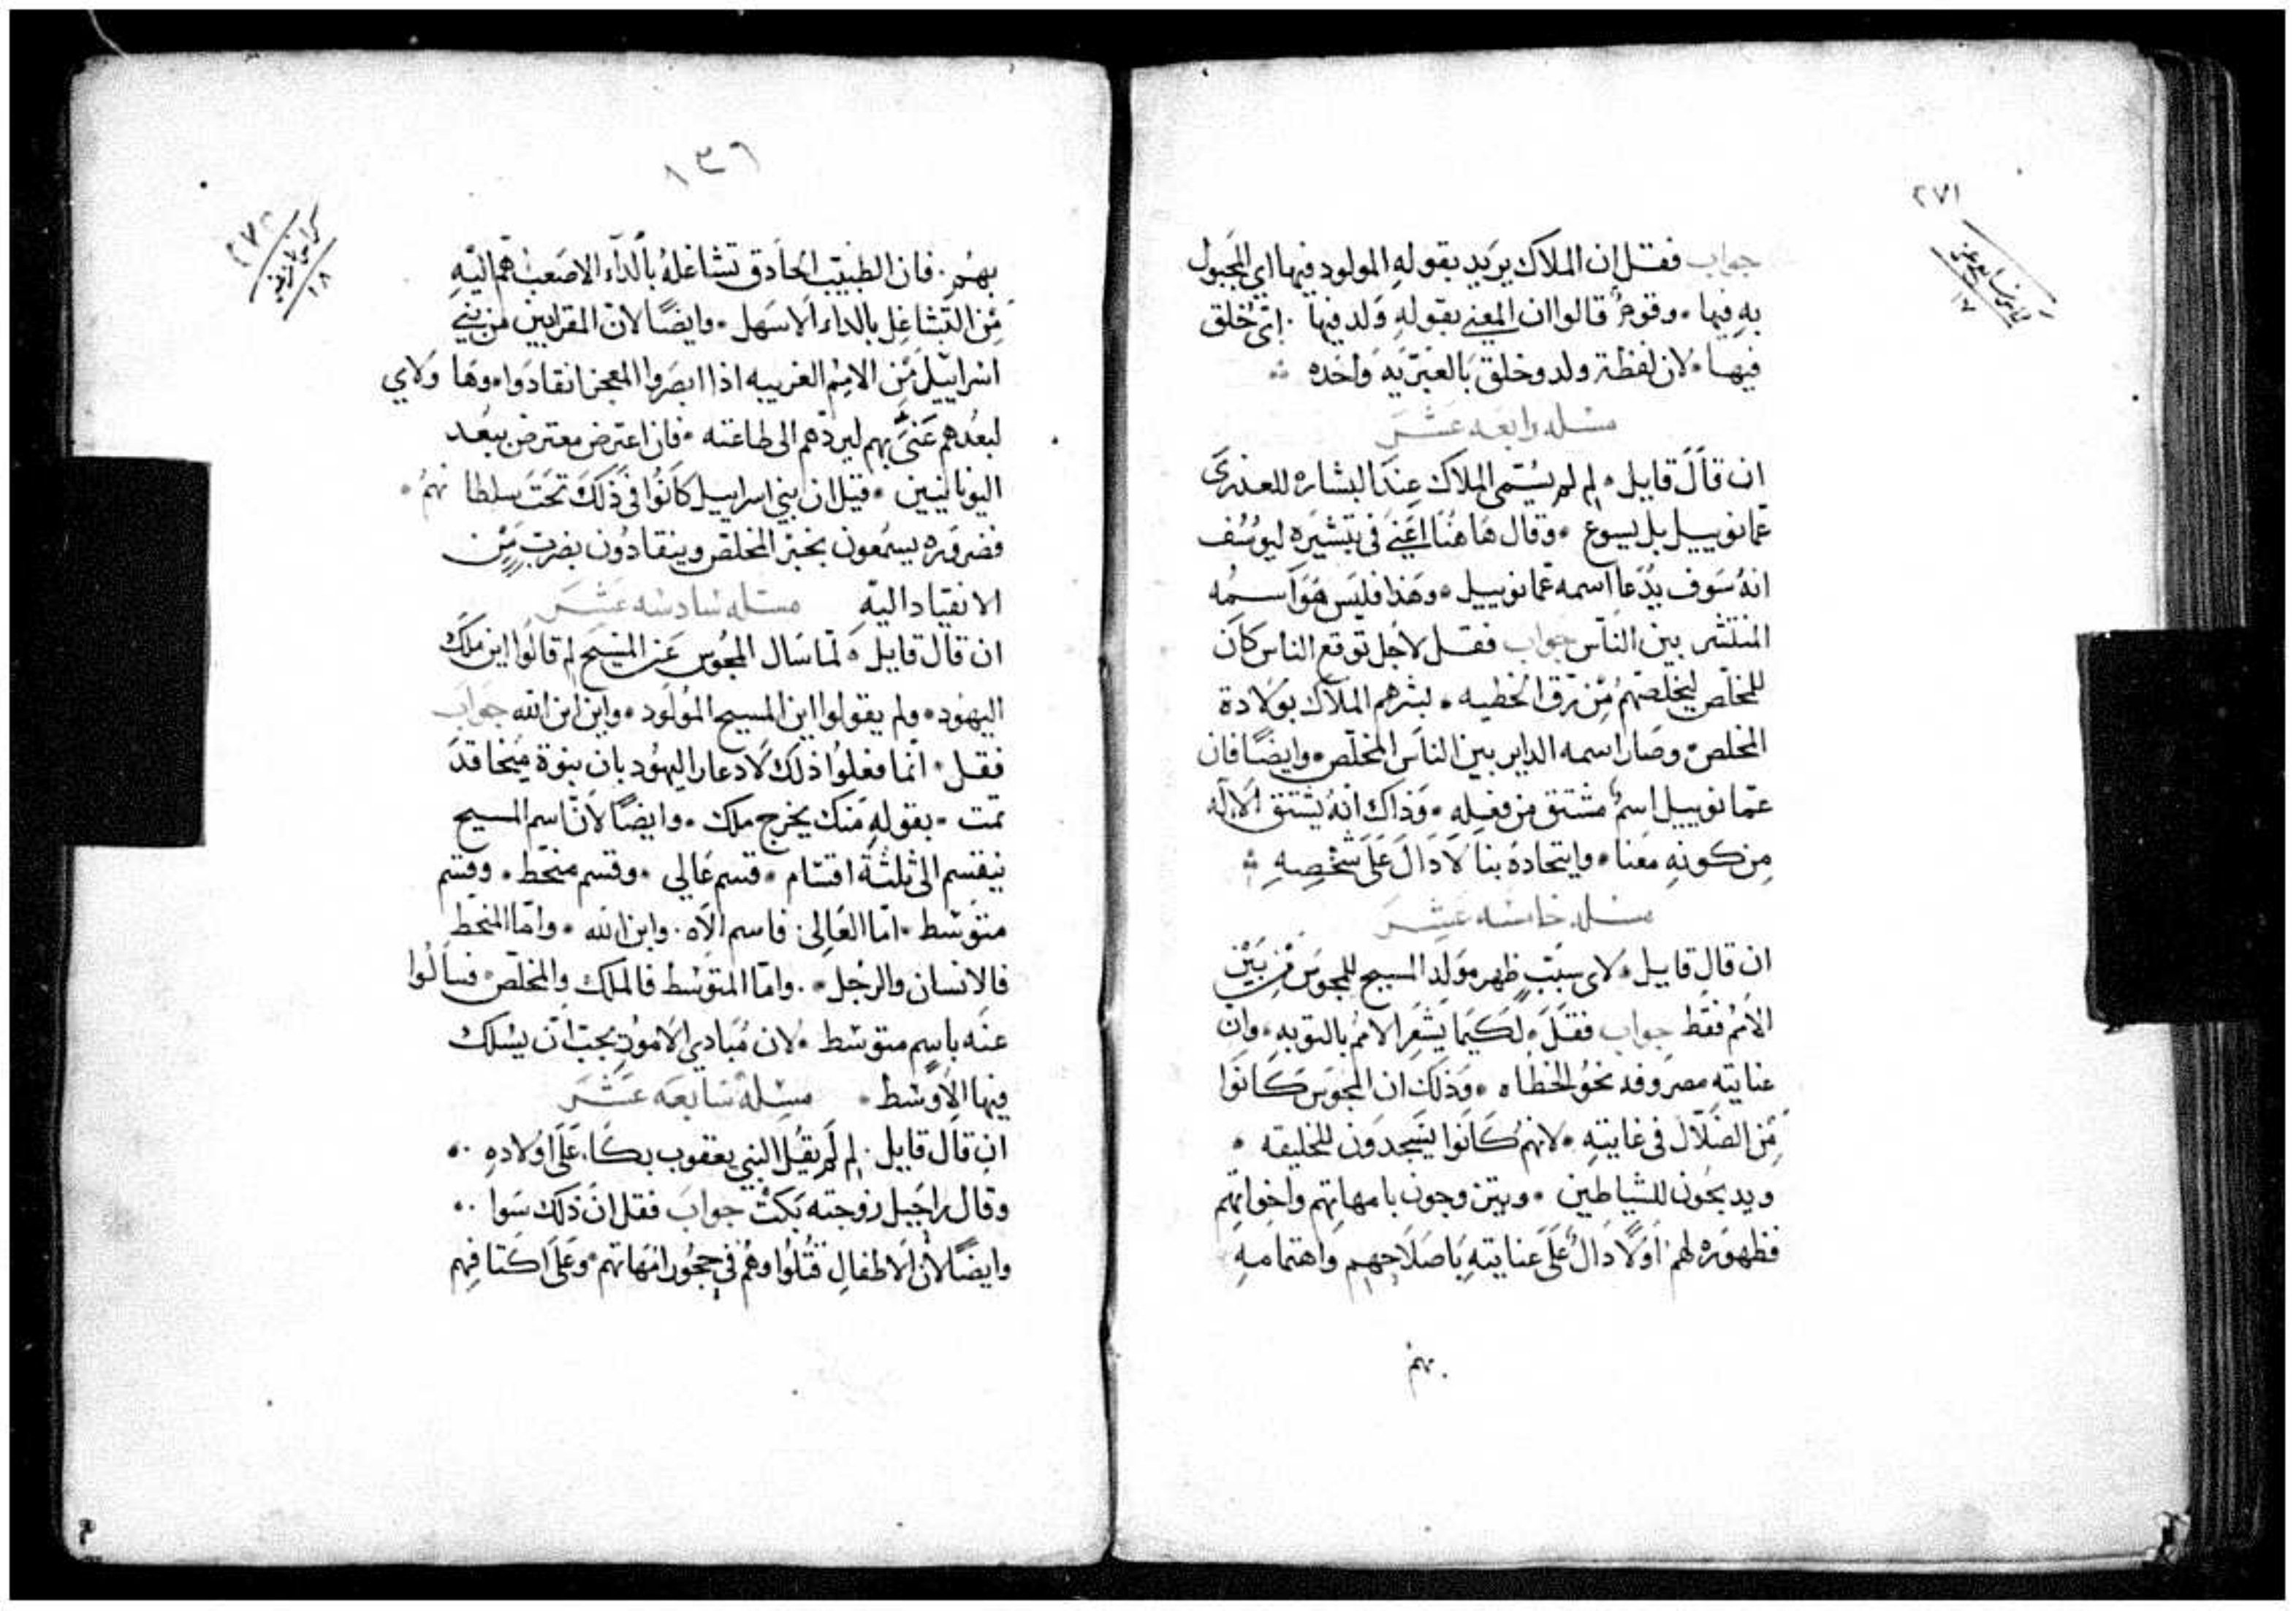 ٢٧١
١٧
جواب فقل ان الملاك يريد بقوله المولود فيها اي المجبول
به فيها ۰ وقومٌ قالوا ان المعني بقولهِ وَلد فيها ۰ اي خُلق
فيها ۰ لان لفظة ولد وخلق بالعبريه واحده
مسله رابعه عشر
ان قال قايل ۰ لِم لم يُسَمي الملاك عند البشاره للعذرى
عمانوييل بل يسوع ۰ وقال هاهنا اعني في تبشيره ليوسف
انهُ سَوف يدعا اسمه عمانوييل ۰ وهذا فليس هو اسمه
المنتشر بين الناس جواب فقل لاجل توقع الناس كان
للمخلّص ليخلصهم من رق الخطيه ۰ بشرهم الملاك بولادة
المخلص ۰ وصار اسمه الداير بين الناس المخلّص ۰ وايضًا فان
عمانوييل اسمٌ مشتق من فعلهِ ۰ وذاك انهُ يشتق الاله
من كونهِ معنا ۰ وايتحاده بنا لا دال على شخصهِ
مسله خامسه عشر
ان قال قايل ۰ لاي سبب ظهر مولد المسيح للمجوس من بين
الامم فقط جواب فقل ۰ لكيما يشعر الامم بالتوبه ۰ وان
عنايته مصروفه نحو الخطاه ۰ وذلك ان المجوس كانوا
من الضلال في غايته ۰ لانهم كانوا يسجدون للخليقه ۰
ويدبحون للشياطين ۰ ويتزوجون بامهاتهم واخواتهم
فظهوره لهم اولًا دالٌ على عنايتهِ باصلاحهم واهتمامهِ
بهم
١٣٦
٢٧٢
١٨
بهم ۰ فان الطبيب الحادق تشاغلهُ بالداء الاصعب اهم اليه
من التشاغل بالداء الاسهل ۰ وايضًا لان المقرابين من بني
اسراييل من الامم الغريبه اذا ابصروا المعجز انقادوا وها ولاي
لبعدهم عَنيَ بهم ليردهم الى طاعته ۰ فان اعترض معترض ببعد
اليونانيين ۰ قيل ان بني اسراييل كانوا في ذلك تحت سلطانهم ۰
فضروره يسمعون بخبر المخلص وينقادون بضرب من
الانقياد اليهِ مسله سادسه عشر
ان قال قايل ۰ لما سَال المجوس عن المسيح لم قالوا اين ملك
اليهود ۰ ولم يقولوا اين المسيح المولود ۰ واين ابن الله جواب
فقل ۰ انما فعلوا ذلك لادعا اليهود بان نبوة ميخا قد
تمت ۰ بقولهِ منك يخرج ملك ۰ وايضًا لان اسم المسيح
ينقسم الى ثلثة اقسام ۰ قسم عالي ۰ وقسم منحط ۰ وقسم
متوسط ۰ اما العالي فاسم الاه ۰ وابن الله ۰ واما المنحط
فالانسان والرجل ۰ واما المتوسط فالملك والمخلص ۰ فسالوا
عنه باسم متوسط ۰ لان مبادي الامور يجب ان يسلك
فيها الاوسط ۰ مسله سابعه عشر
ان قال قايل ۰ لِم لم يقل النبي يعقوب بكا على اولاده ۰
وقال راحيل زوجته بكت جواب فقل ان ذلك سوا ۰
وايضًا لان الاطفال قُتلوا وهم في حجور امهاتهم ۰ وعلى اكتافهم